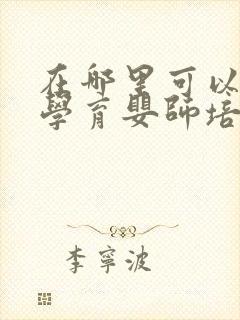 在哪里可以
學育嬰師培
李寧波